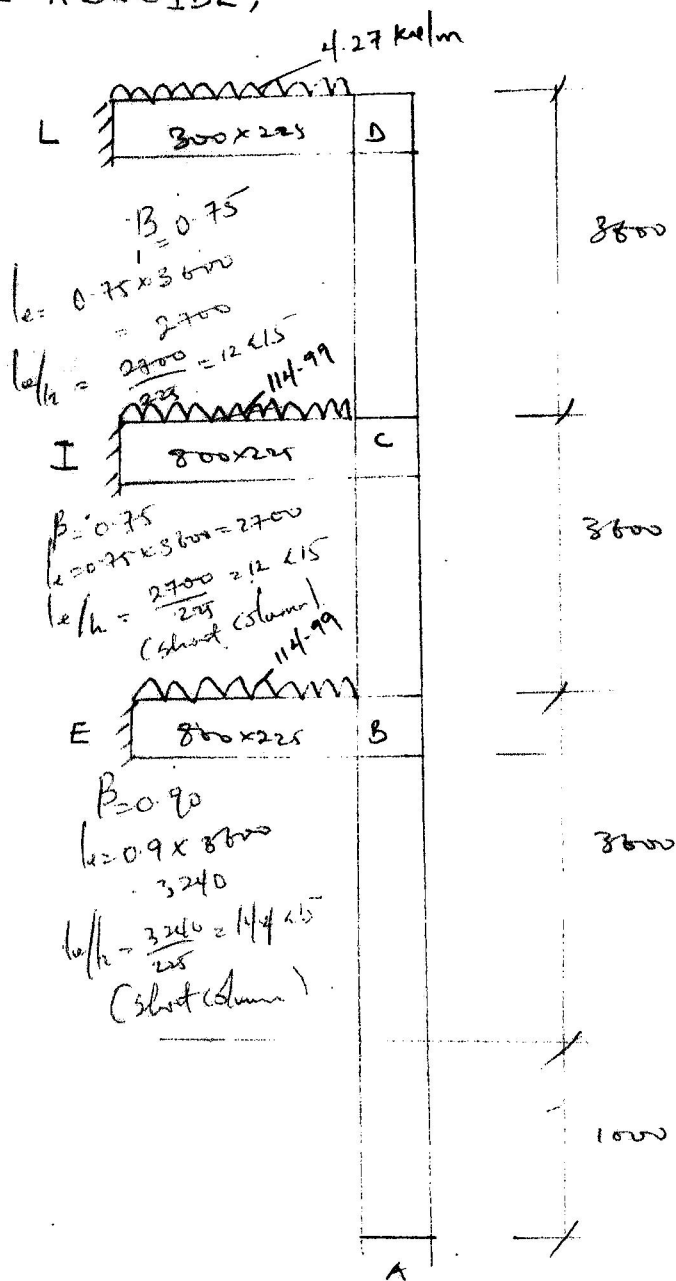 4.27 kN/m
L 300 x 225 D
3600
β = 0.75
le = 0.75 x 3600
= 2700
le/h = 2700/225 = 12 < 15
114.99
I 800x225 C
3600
β = 0.75
le = 0.75 x 3600 = 2700
le/h = 2700/225 = 12 < 15
(short column)
114.99
E 800x225 B
β = 0.90
le = 0.9 x 3600
3240
le/h = 3240/225 = 14.4 < 15
(short column)
3600
1000
A